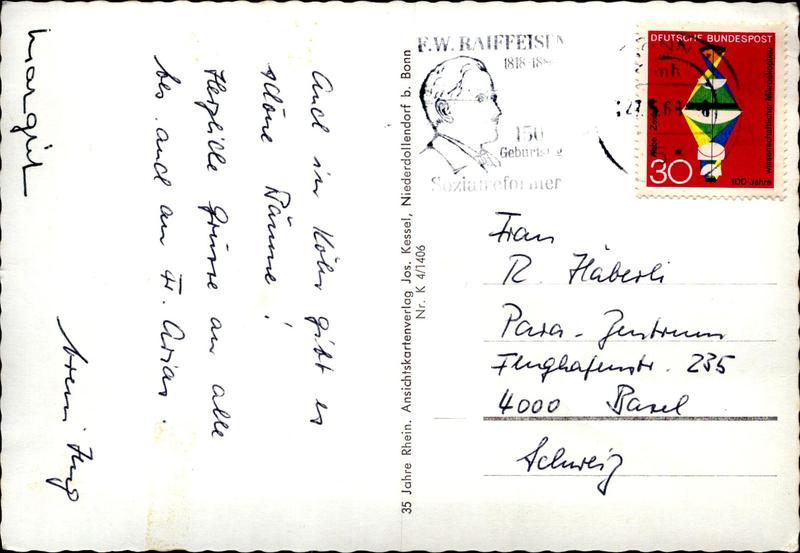 Auch in Köln gibt es
schöne Bäume!
Herzliche Grüsse an alle
bes. auch an Fr. Arias.
Margrit
35 Jahre Rhein. Ansichtskartenverlag Jos. Kessel, Niederdollendorf b. Bonn
Nr. K 4/1406
F.W. RAIFFEISEN
1818-188
150
Geburtstag
Sozialreformer
DEUTSCHE BUNDESPOST
wissenschaftlicher Mikroskopbau
30
100 Jahre
Frau
R. Häberli
Para-Zentrum
Flughafenstr. 235
4000 Basel
Schweiz